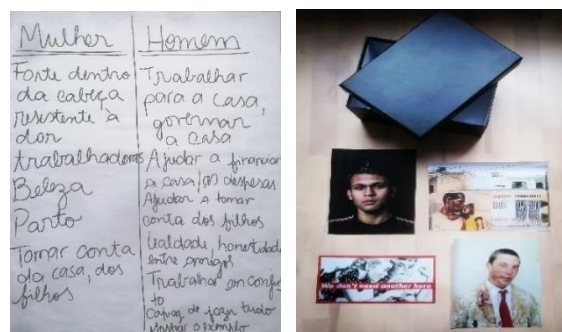 Mulher
Forte dentro
da cabeça
resistente à
dor
trabalhadoras
Beleza
Parto
Tomar conta
da casa, dos
filhos
Homem
Trabalhar
para a casa,
governar
a casa
Ajudar a financiar
a casa/as despesas
Ajudar a tomar
conta dos filhos
Lealdade, honestidade
entre amigos
Trabalhar em conju
to
Capaz de
o exemplo
We don't need another hero